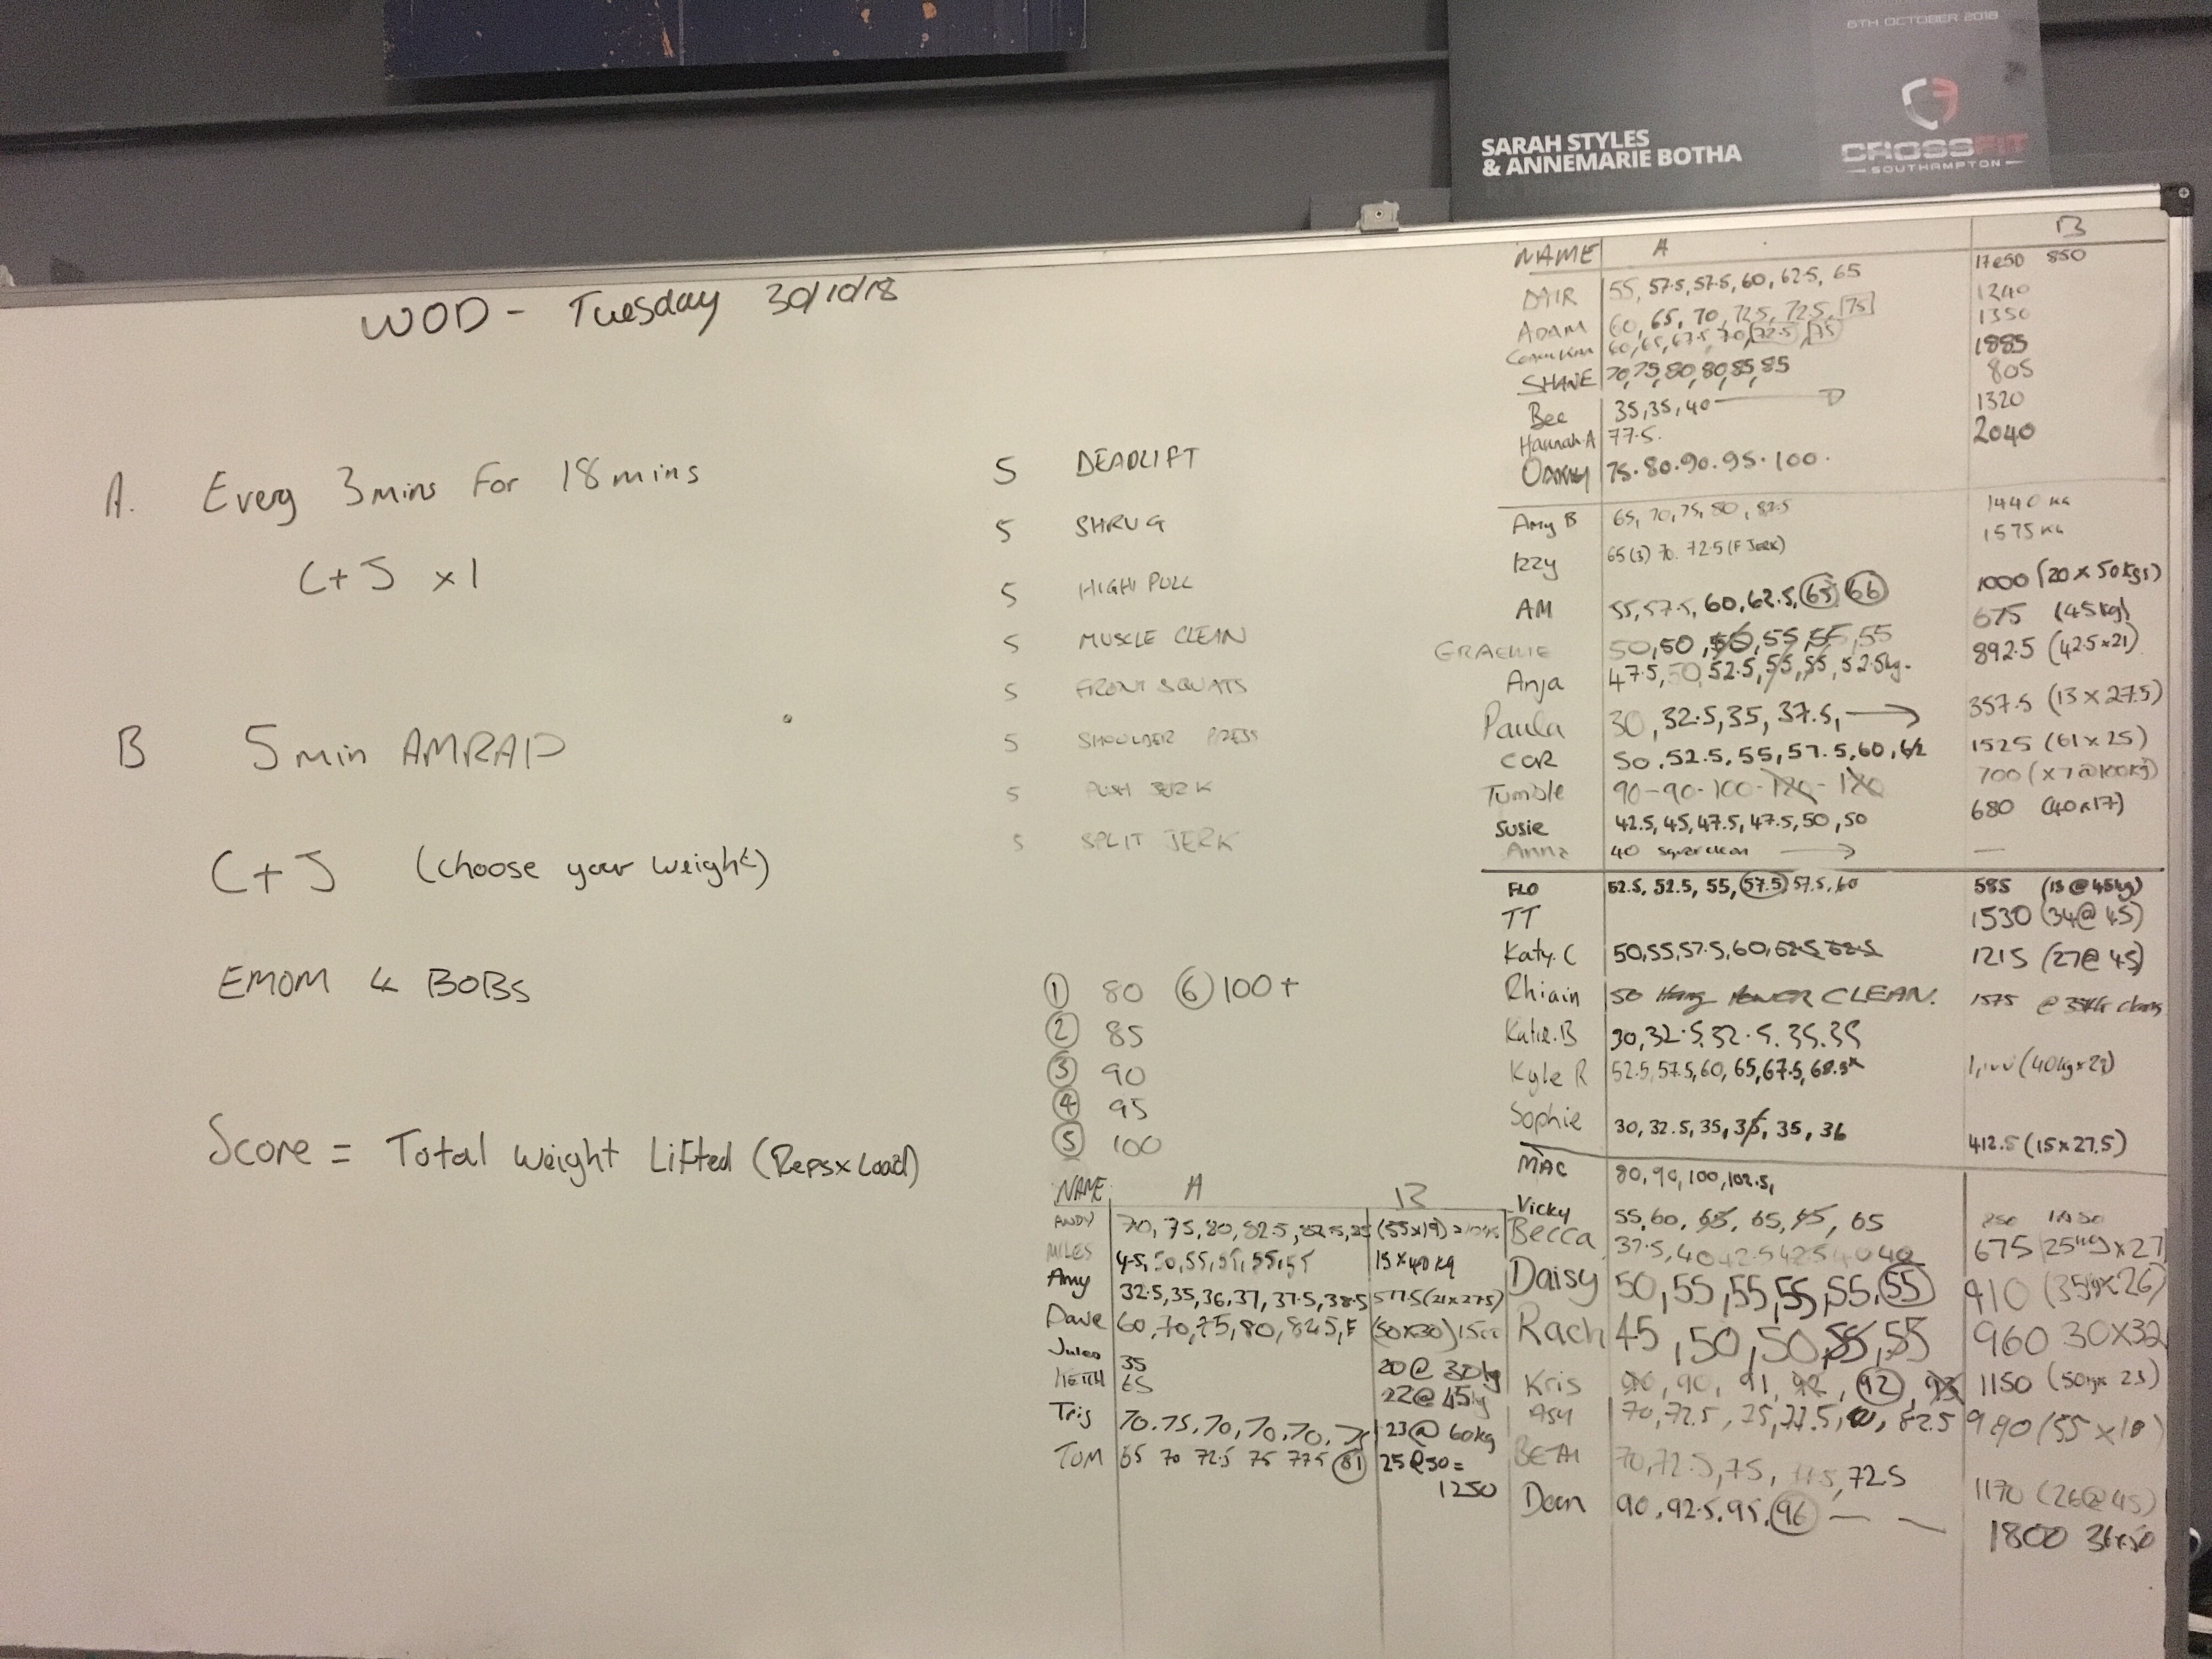 6TH OCTOBER 2018
SARAH STYLES
& ANNEMARIE BOTHA
CROSSFIT
SOUTHAMPTON
WOD - Tuesday 30/10/18
A. Every 3mins For 18mins
C+J x1
B 5 min AMRAP
C+J (choose your weight)
EMOM 4 BOBS
Score = Total Weight Lifted (Reps x Load)
5 DEADLIFT
5 SHRUG
5 HIGH PULL
5 MUSCLE CLEAN
5 FRONT SQUATS
5 SHOULDER PRESS
5 PUSH JERK
5 SPLIT JERK
① 80 ⑥ 100+
② 85
③ 90
④ 95
⑤ 100
NAME A B
ANDY 70, 75, 80, 82.5, 82.5, 85 (55x19)
MILES 45, 50, 55, 55, 55, 55 15x40kg
Amy 32.5, 35, 36, 37, 37.5, 38.5 577.5 (21x27.5)
Dave 60, 70, 75, 80, 82.5, F (50x30) 1500
Jules 35 20@30kg
KEITH 65 22@45kg
Tris 70. 75, 70, 70, 70, 23@60kg
TOM 65 70 72.5 75 77.5 81 25@50=
1250
NAME A B
55, 57.5, 57.5, 60, 62.5, 65 17@50 850
ADAM 60, 65, 70, 72.5, 72.5, 75 1240
60, 65, 67.5, 70, 72.5, 75 1350
SHANE 70, 75, 80, 80, 85, 85 1885
Bee 35, 35, 40 805
Hannah.A 77.5. 1320
75.80.90.95.100. 2040
Amy B 65, 70, 75, 80, 82.5 1440 KG
Izzy 65(3) 70. 72.5 (F JERK) 1575 KG
AM 55, 57.5, 60, 62.5, 65 66 1000 (20 x 50kgs)
GRAEME 50, 50, 50, 55, 55, 55 675 (45kg)
Anja 47.5, 50, 52.5, 55, 55, 52.5kg. 892.5 (42.5x21)
Paula 30, 32.5, 35, 37.5, → 357.5 (13 x 27.5)
COR 50, 52.5, 55, 57.5, 60, 62 1525 (61 x 25)
Tumble 90-90-100-120-120 700 (x7@100kg)
Susie 42.5, 45, 47.5, 47.5, 50, 50 680 (40x17)
Anna 40 → —
FLO 52.5, 52.5, 55, 57.5, 57.5, 60 585 (13@45kg)
TT 1530 (34@45)
Katy.C 50, 55, 57.5, 60, 62.5 62.5 1215 (27@45)
Rhiain 50 Hang POWER CLEAN. 1575
Katie.B 30, 32.5, 32.5, 35, 35
Kyle R 52.5, 57.5, 60, 65, 67.5, 68.5
Sophie 30, 32.5, 35, 35, 35, 36 412.5 (15x27.5)
MAC 80, 90, 100, 102.5,
Vicky 55, 60, 65, 65, 65, 65
Becca 37.5, 40 42.5 42.5 40 40 675 25kg x 27
Daisy 50, 55, 55, 55, 55, 55 910 (35kg x 26)
Rach 45, 50, 50, 55, 55 960 30x32
Kris 90, 90, 91, 92, 92, 93 1150 (50kgx 23)
70, 72.5, 75, 77.5, 82.5 990 (55 x 18)
BETH 70, 72.5, 75, 77.5, 72.5 1170 (26@45)
Dean 90, 92.5, 95, 96 — — 1800 36x50